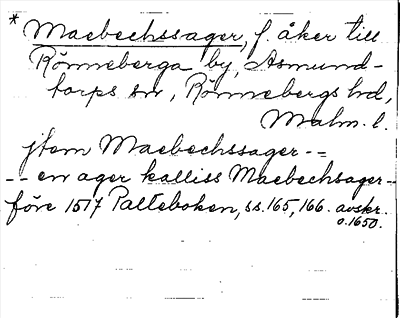 * Maebechssager, f. åker till
Rönneberga by, Asmund-
torps sn, Rönnebergs hd,
Malm. l.
jtem Maebechssager --
-- en ager kalliss Maebechsager --
före 1517 Palteboken, ss. 165, 166. avskr.
o. 1650.